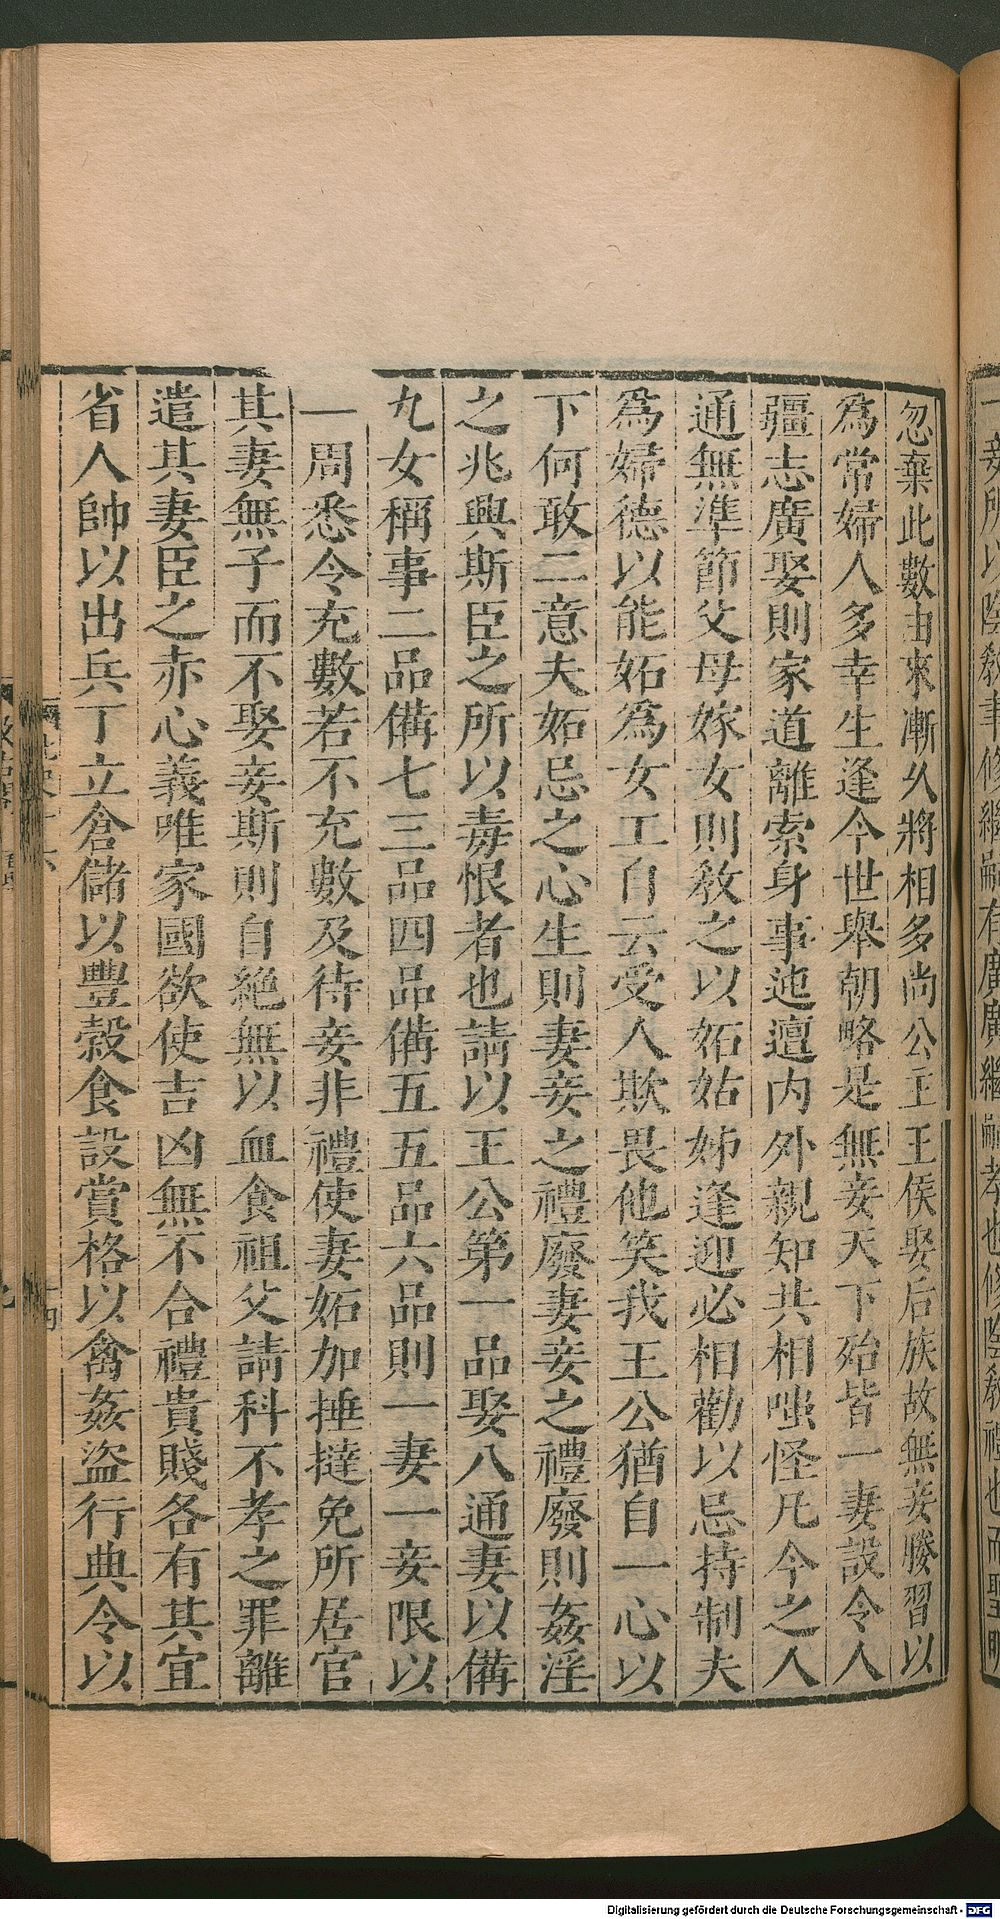 忽棄此數由來漸久將相多尚公主王侯娶后族故無妾媵習以
爲常婦人多幸生逢今世舉朝略是無妾天下殆皆一妻設令人
疆志廣娶則家道離索身事迍邅内外親知共相嗤怪凡今之人
通無準節父母嫁女則敎之以妬姑姊逢迎必相勸以忌持制夫
爲婦德以能妬爲女工自云受人欺畏他笑我王公猶自一心以
下何敢二意夫妬忌之心生則妻妾之禮廢妻妾之禮廢則姦淫
之兆興斯臣之所以毒恨者也請以王公第一品娶八通妻以備
九女稱事二品備七三品四品備五五品六品則一妻一妾限以
一周悉令充數若不充數及待妾非禮使妻妬加捶撻免所居官
其妻無子而不娶妾斯則自絕無以血食祖父請科不孝之罪離
遣其妻臣之赤心義唯家國欲使吉凶無不合禮貴賤各有其宜
省人帥以出兵丁立倉儲以豐穀食設賞格以禽姦盜行典令以
Digitalisierung gefördert durch die Deutsche Forschungsgemeinschaft - DFG